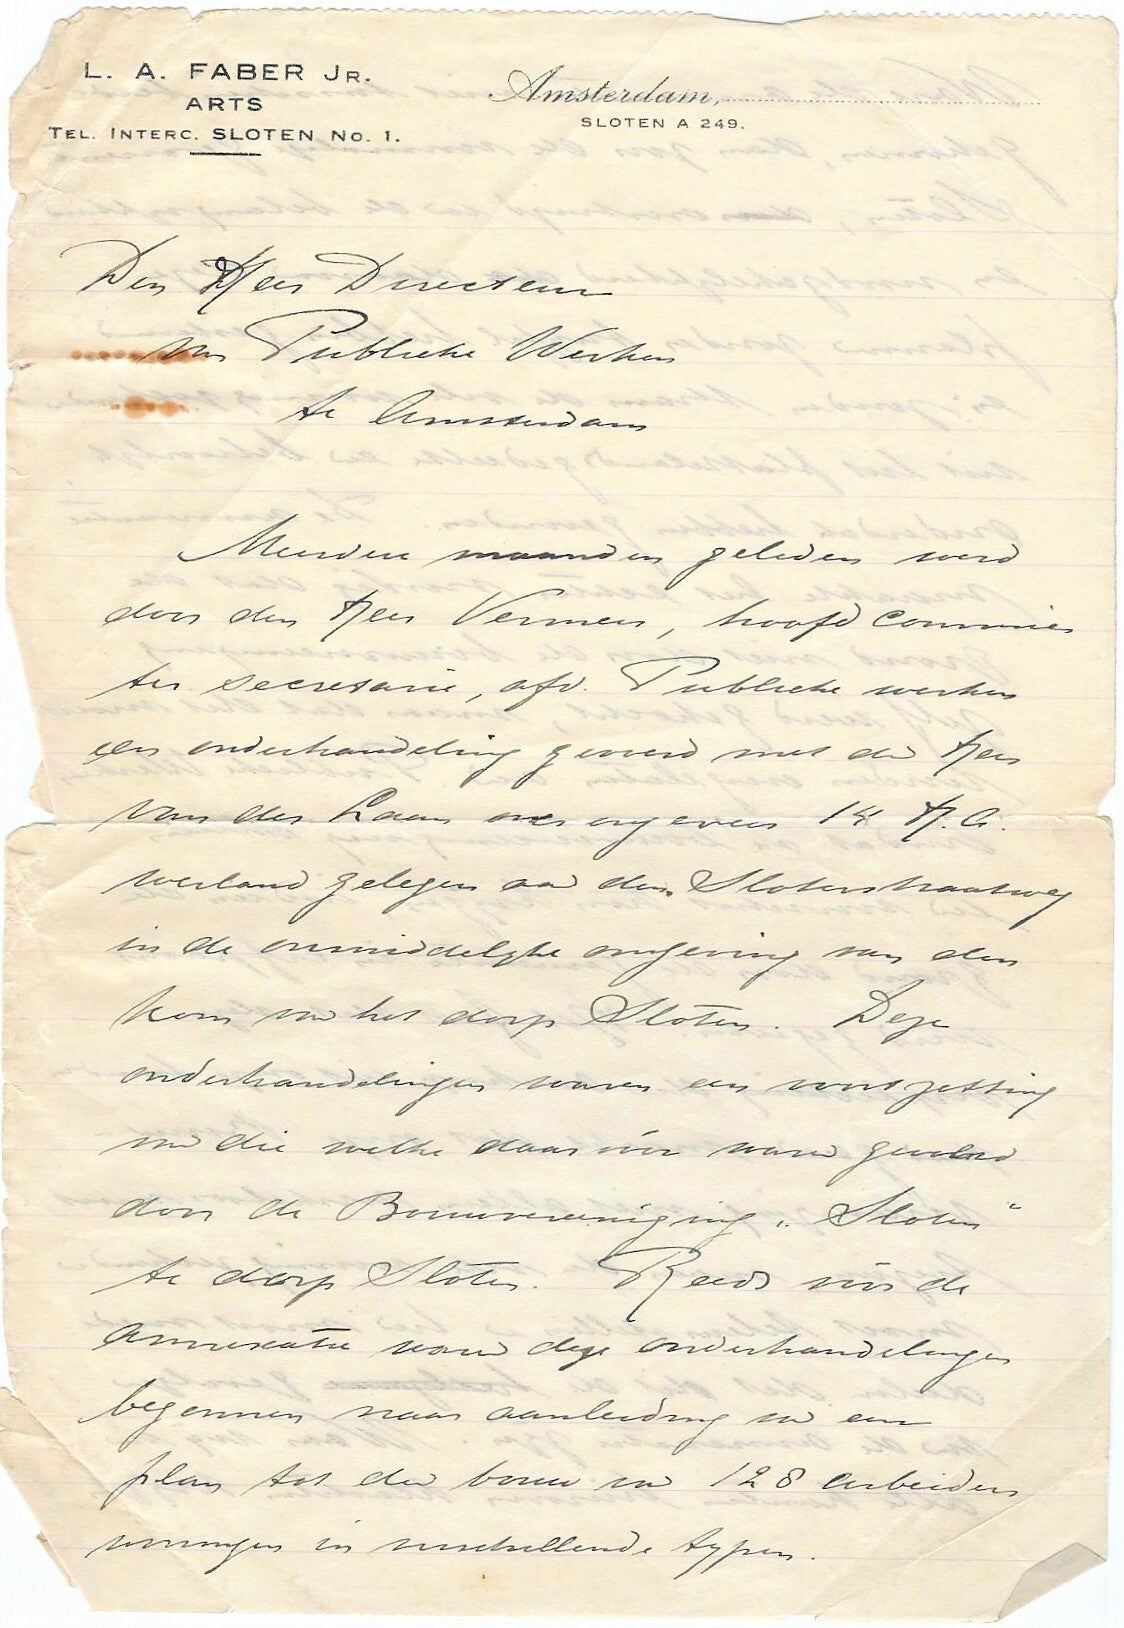 L. A. FABER JR.
ARTS
TEL. INTERC. SLOTEN NO. 1.
Amsterdam,
SLOTEN A 249.
Den Heer Directeur
van Publieke Werken
te Amsterdam
Meerdere maanden geleden werd
door den Heer Vermeer, hoofd commies
ter secretarie, afd. Publieke werken
een onderhandeling gevoerd met de Heer
van der Laan over ongeveer 14 H.A.
weiland gelegen aan den Sloterstraatweg
in de onmiddelijke omgeving van den
kom van het dorp Sloten. Deze
onderhandelingen waren een voortzetting
van die welke daar vóór waren gevoerd
door de Bouwvereeniging „Sloten"
te dorp Sloten. Reeds vóór de
annexatie waren deze onderhandelingen
begonnen naar aanleiding van een
plan tot den bouw van 128 arbeiders
woningen in verschillende typen.